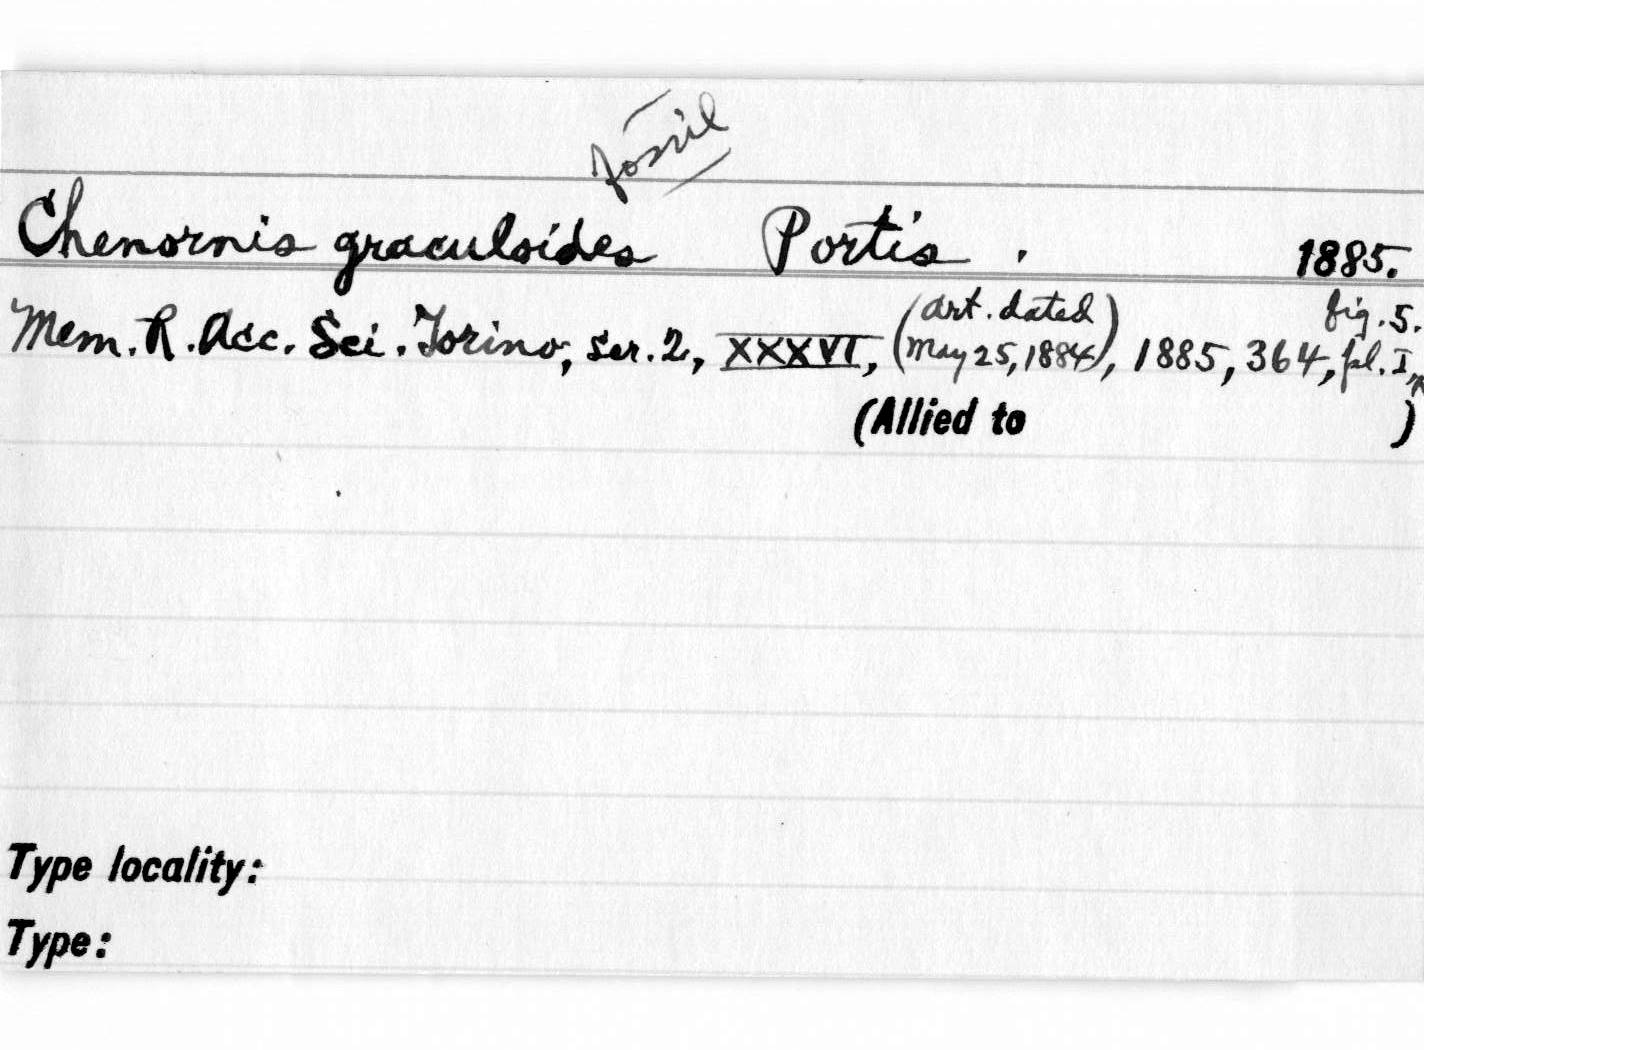 fossil
Chenornis graculoides Portis. 1885.
Mem. R. Acc. Sci. Torino, ser. 2, XXXVI, (art. dated May 25, 1884), 1885, 364, pl. I, fig. 5.
(Allied to )
Type locality:
Type: